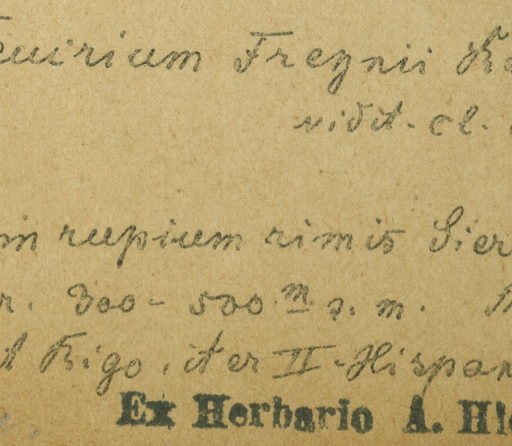 eucrium Freynii
vidit. cl.
in rupium rimis Sier
r. 300 - 500 m s. m.
t Rigo, iter II Hispan
Ex Herbario A. Hi